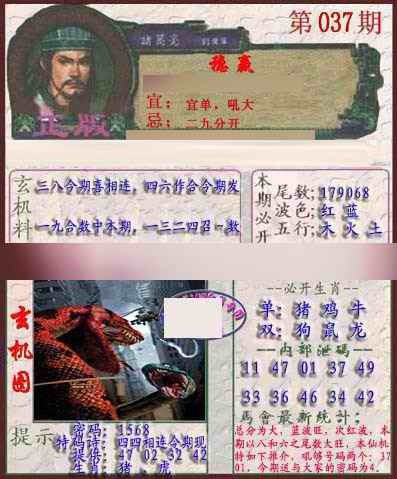 第037期
諸葛亮
稳赢
宜：宜单，吼大
忌：二九分开
正版
玄机料
三八合今期喜相连，四六作合今期发
一九合数中本期，一三二四召一数
本期必开
尾数:179068
波色:红 蓝
五行:木 火 土
玄机图
必开生肖
单: 猪 鸡 牛
双: 狗 鼠 龙
内部泄码
11 47 01 37 49
33 36 46 34 42
馬會最新統計:
总分为大，蓝波旺，次红波，本
期以八和六之尾数大旺，本仙机
特如下推介，吼够号码两个：37
01，今期送与大家的密码为4．
提示
密码: 1568
特码诗: 四四相连合期现
提供: 47 02 32 42
生肖: 猪、虎